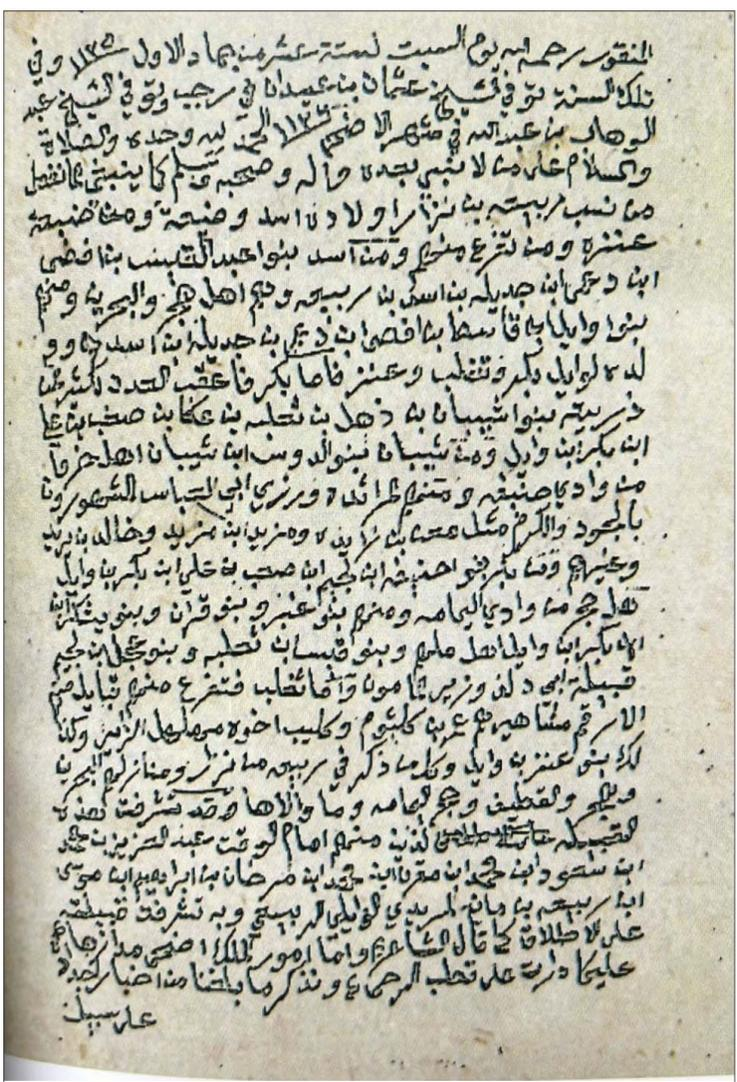 المنقور رحمه الله يوم السبت لستة عشر من جماد الاول ١١٢٥ وفي
تلك السنة توفي عثمان بن عبيدان في رجب وتوفي الشيخ عبد
الوهاب بن عبدالله في شهر الاضحى ١١٢٥ الحمد لله وحده والصلاة
والسلام على من لا نبي بعده واله وصحبه وسلم كما ينبغي مما نقل
من نسب ربيعه بن نزار اولاده اسد وضبيعة ومن ضبيعة
عنزه ومن تفرع منهم ومن اسد بنوا عبد القيس بن افصى
ابن دعمى ابن جديله بن اسد بن ربيعه وهم اهل هجر والبحرين ومنهم
بنوا وايل بن قاسط بن افصى ابن دعمي بن جديله ابن اسد وو
لده لوايل بكر وتغلب وعنز فاما بكر فاعقب العدد
ربيعه بنوا شيبان بن ذهل بن ثعلبه بن عكا بن صعب بن علي
ابن بكر ابن وايل ومن شيبان بنوا لدوس ابن شيبان اهل
من وادي حنيفه ومنهم ابي العباس المشهورون
بالجود والكرم مثل معن بن زايده ومزيد ابن مزيد وخالد بن يزيد
وغيرهم ومن بكر بنو احنيفه ابن لجيم ابن صعب بن علي ابن بكر بن وايل
اهل حجر من وادي اليمامه ومنهم بنو اعنبر وبنو قران وبنو يشكر ابن
بكر ابن وايل اهل ملهم وبنو قيس ابن ثعلبه وبنو عجل ابن لجيم
قبيلة ابي دلف وزير المامون واما تغلب فتفرع منهم قبايل منهم
الاراقم مشاهيرهم عمر بن كلثوم وكليب اخوه مهلهل الزير وكذا
لك بنو عنز بن وايل وكلما ذكر في ربيعه من نزار ومنازلهم البحرين
وهجر والقطيف وحجر اليمامه وما والاها وقد تشرفت هذه
القبيله الذين منهم امام الوقت عبد العزيز بن محمد
ابن سعود ابن محمد ابن مقرن ابن محمد ابن مرخان بن ابراهيم ابن موسى
ابن ربيعه بن مانع المريدي الوايلي الربيعي وبه تشرفت قبيلته
على الاطلاق كما قال الشاعر واما امور الملك اضحى مدارها
عليكما دارت على قطب الرحى ونذكر ما بلغنا من اخبار
على سبيل